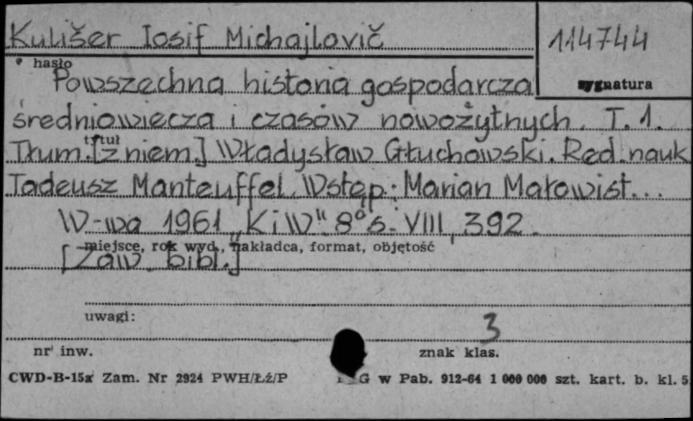 Kulišer Iosif Michajlovič
114744
hasło
sygnatura
Powszechna historia gospodarcza
średniowiecza i czasów nowożytnych. T. 1.
tytuł
Tłum. [z niem.] Władysław Głuchowski. Red. nauk.
Tadeusz Manteuffel. Wstęp: Marian Małowist...
W-wa 1961 „KiW" 8° s. VIII, 392.
miejsce, rok wyd., nakładca, format, objętość
[Zaw. bibl.]
uwagi:
3
nr inw.
znak klas.
CWD-B-15a Zam. Nr 2924 PWH/Łź/P
G w Pab. 912-64 1 000 000 szt. kart. b. kl. 5